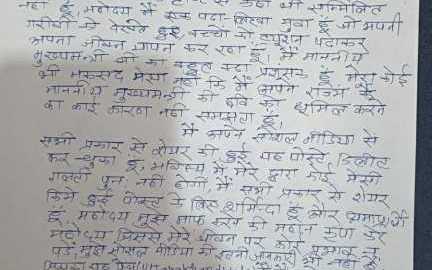 नहीं हूँ, महोदय मैं एक पढ़ा लिखा युवा हूँ जो अपनी
गरीबी को देखते हुए बच्चों को ट्यूशन पढ़ाकर
अपना जीवन यापन कर रहा हूँ। मैं माननीय
मुख्यमंत्री जी का बहुत बड़ा प्रशंसक हूँ मेरा कोई
भी मकसद मेरा नहीं कि मैं अपने राज्य के
माननीय मुख्यमंत्री की छवि को धूमिल करने
का कोई कारण नहीं समझता हूँ।
मैं अपने सोशल मीडिया से
सभी प्रकार से शेयर की हुई यह पोस्ट डिलीट
कर चुका हूँ, भविष्य में मेरे द्वारा कोई ऐसी
गलती पुनः नहीं होगी, मैं सभी प्रकार से शेयर
किये हुई पोस्ट के लिए शर्मिंदा हूँ और क्षमाप्रार्थी
हूँ, महोदय मुझे माफ करने की महान कृपा करें
महोदय जिससे मेरे जीवन पर कोई प्रभाव न
पड़े, मुझे सोशल मीडिया की इतनी जानकारी भी नहीं है